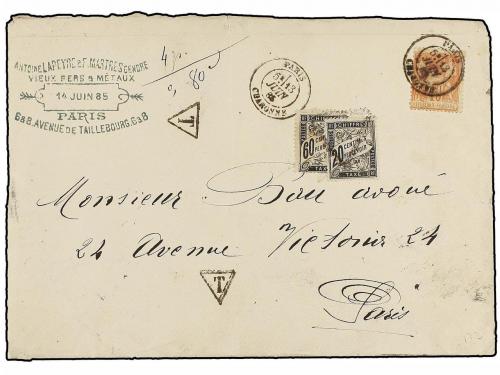 ANTOINE LAPEYRE & F. MARTRES GENDRE
VIEUX FERS & MÉTAUX
14 JUIN 85
PARIS
6&8, AVENUE DE TAILLEBOURG, 6&8
4
80
T
PARIS
JUIN
CHARONNE
PARIS
CHIFFRE
60 CENTIMES
TAXE
CHIFFRE
20 CENTIMES
A PERCEVOIR
TAXE
Monsieur Bau avoué
24 Avenue Victoria 24
Paris
T